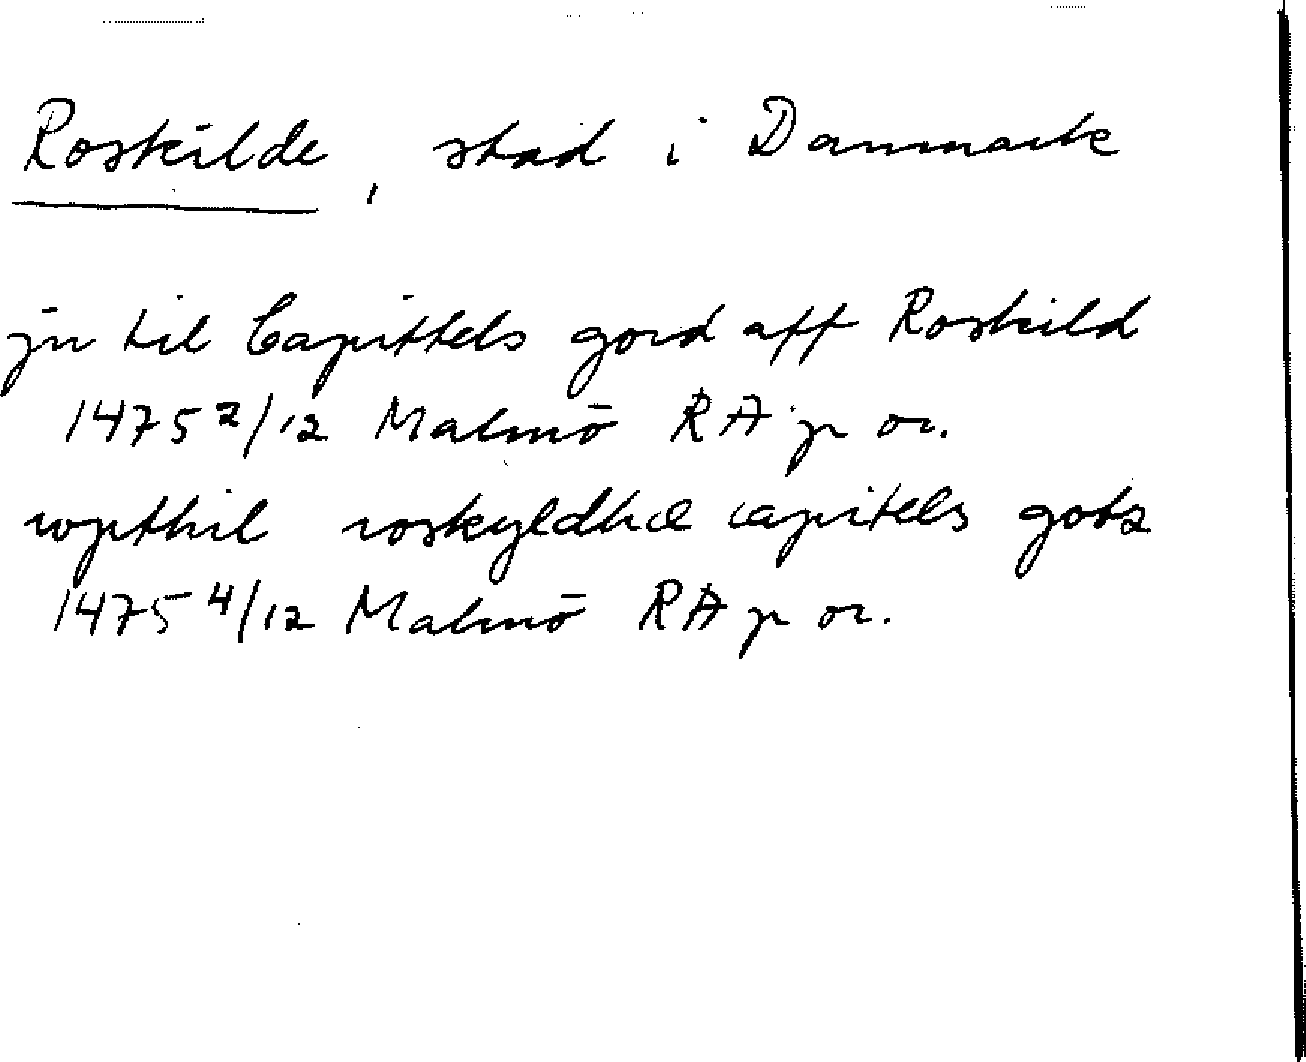 Roskilde, stad i Danmark
jn til Capittels gord aff Roskild
1475 2/12 Malmö RA p or.
wpthil roskyldhæ capitels gotz
1475 4/12 Malmö RA p or.